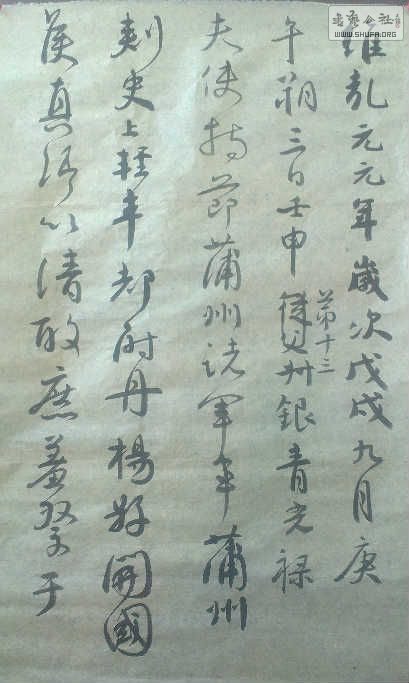 書藝公社
WWW.SHUFA.ORG
維乾元元年歲次戊戌九月庚
午朔三日壬申第十三從父叔銀青光祿
夫使持節蒲州諸軍事蒲州
刺史上輕車都尉丹楊縣開國
侯真卿以清酌庶羞祭于